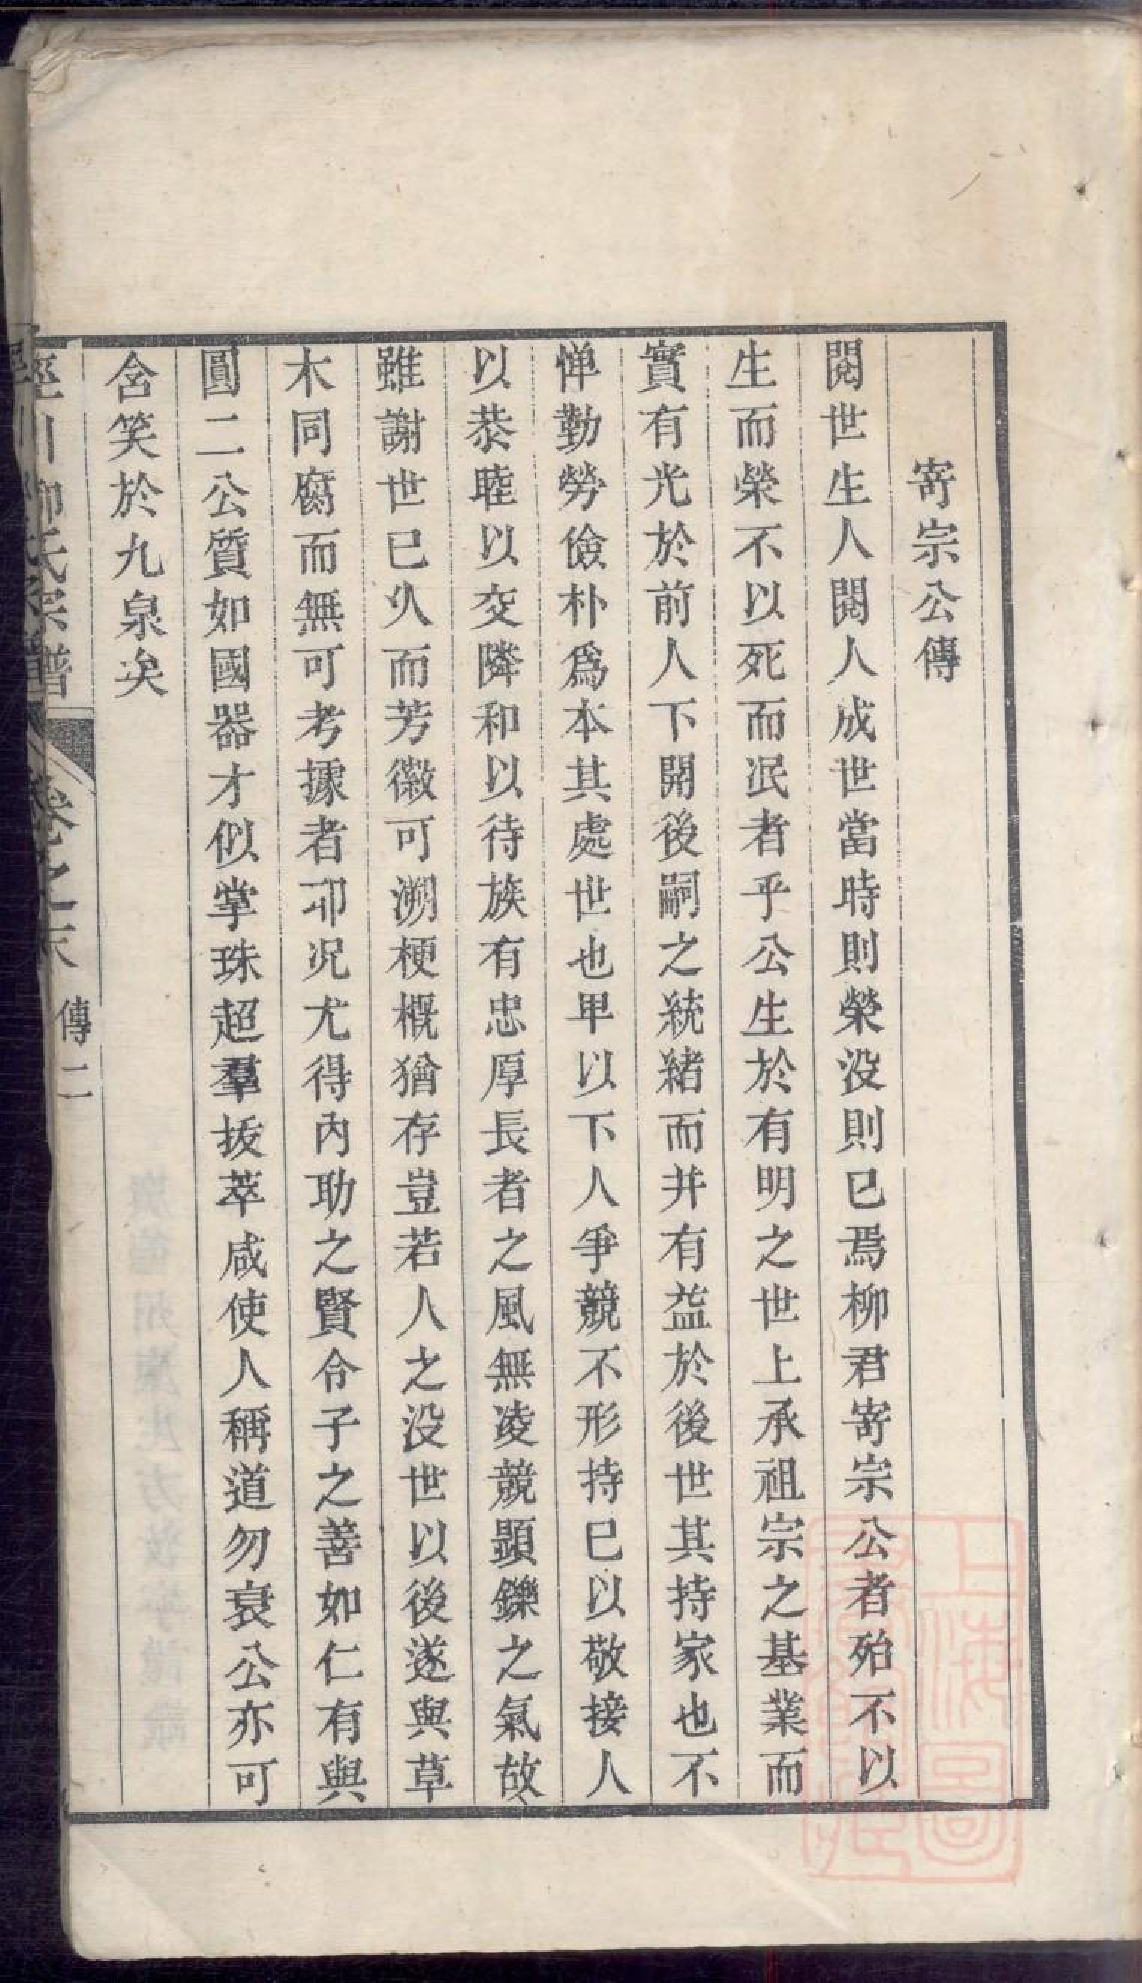 寄宗公傳
閱世生人閱人成世當時則榮没則已焉柳君寄宗公者殆不以
生而榮不以死而泯者乎公生於有明之世上承祖宗之基業而
實有光於前人下開後嗣之統緒而并有益於後世其持家也不
惮勤勞儉朴爲本其處世也甲以下人爭競不形持已以敬接人
以恭睦以交隣和以待族有忠厚長者之風無凌競顯鑠之氣故
雖謝世已久而芳徽可溯梗概猶存豈若人之没世以後遂與草
木同腐而無可考據者邪况尤得内助之賢令子之善如仁有與
圓二公質如國器才似掌珠超羣拔萃咸使人稱道勿衰公亦可
含笑於九泉矣
涇川柳氏宗譜 卷之末 傳二
上海圖